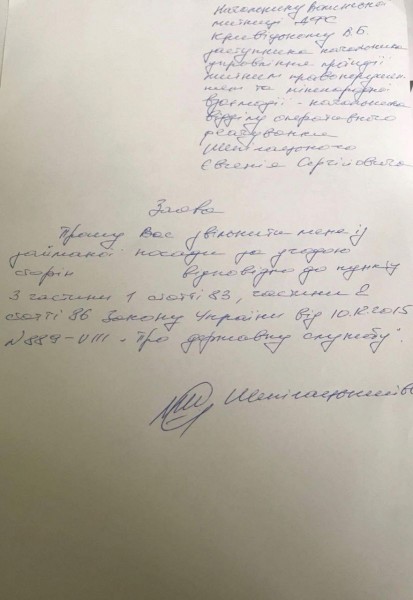 Начальнику Волинської
митниці ДФС
Кривіцькому В.Б.
заступника начальника
управління протидії
митним правопорушен
ням та міжнародної
взаємодії - начальника
відділу оперативного
реагування
Шепілацького
Євгенія Сергійовича
Заява
Прошу Вас звільнити мене із
займаної посади за угодою
сторін відповідно до пункту
3 частини 1 статті 83, частини 2
статті 86 Закону України від 10.12.2015
№889-VIII „Про державну службу".